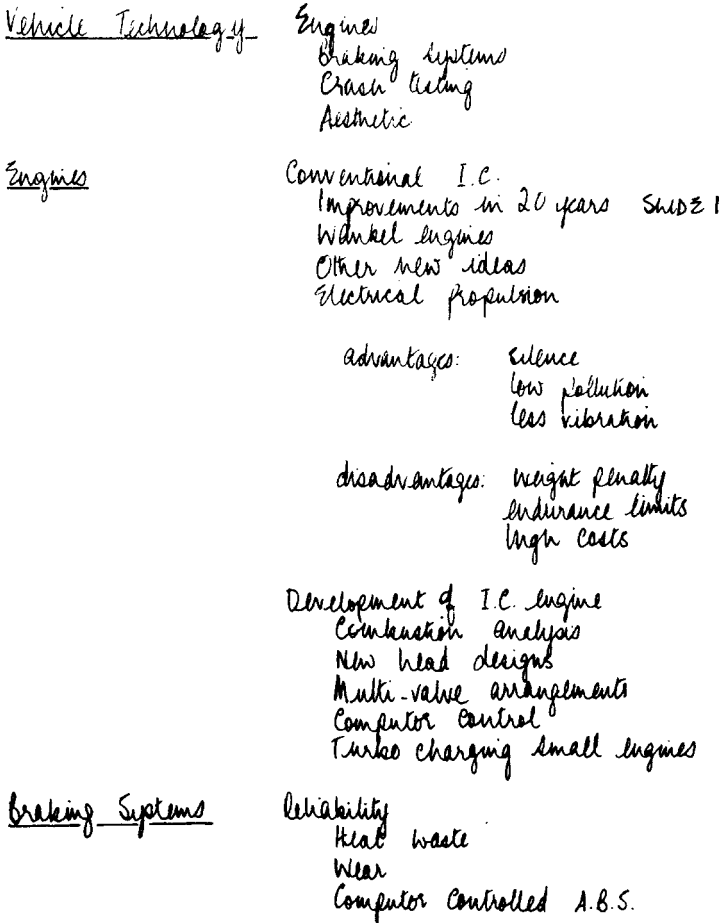 Vehicle Technology Engines
Braking Systems
Crash testing
Aesthetic
Engines Conventional I.C.
Improvements in 20 years SLIDE 1
Wankel engines
Other new ideas
Electrical Propulsion
advantages: silence
low pollution
less vibration
disadvantages: weight penalty
endurance limits
high costs
Development of I.C. engine
Combustion analysis
New head designs
Multi-valve arrangements
Computor control
Turbo charging small engines
Braking Systems Reliability
Heat waste
Wear
Computor controlled A.B.S.